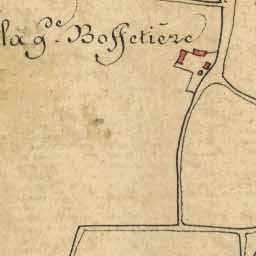 la g.de Bossetière